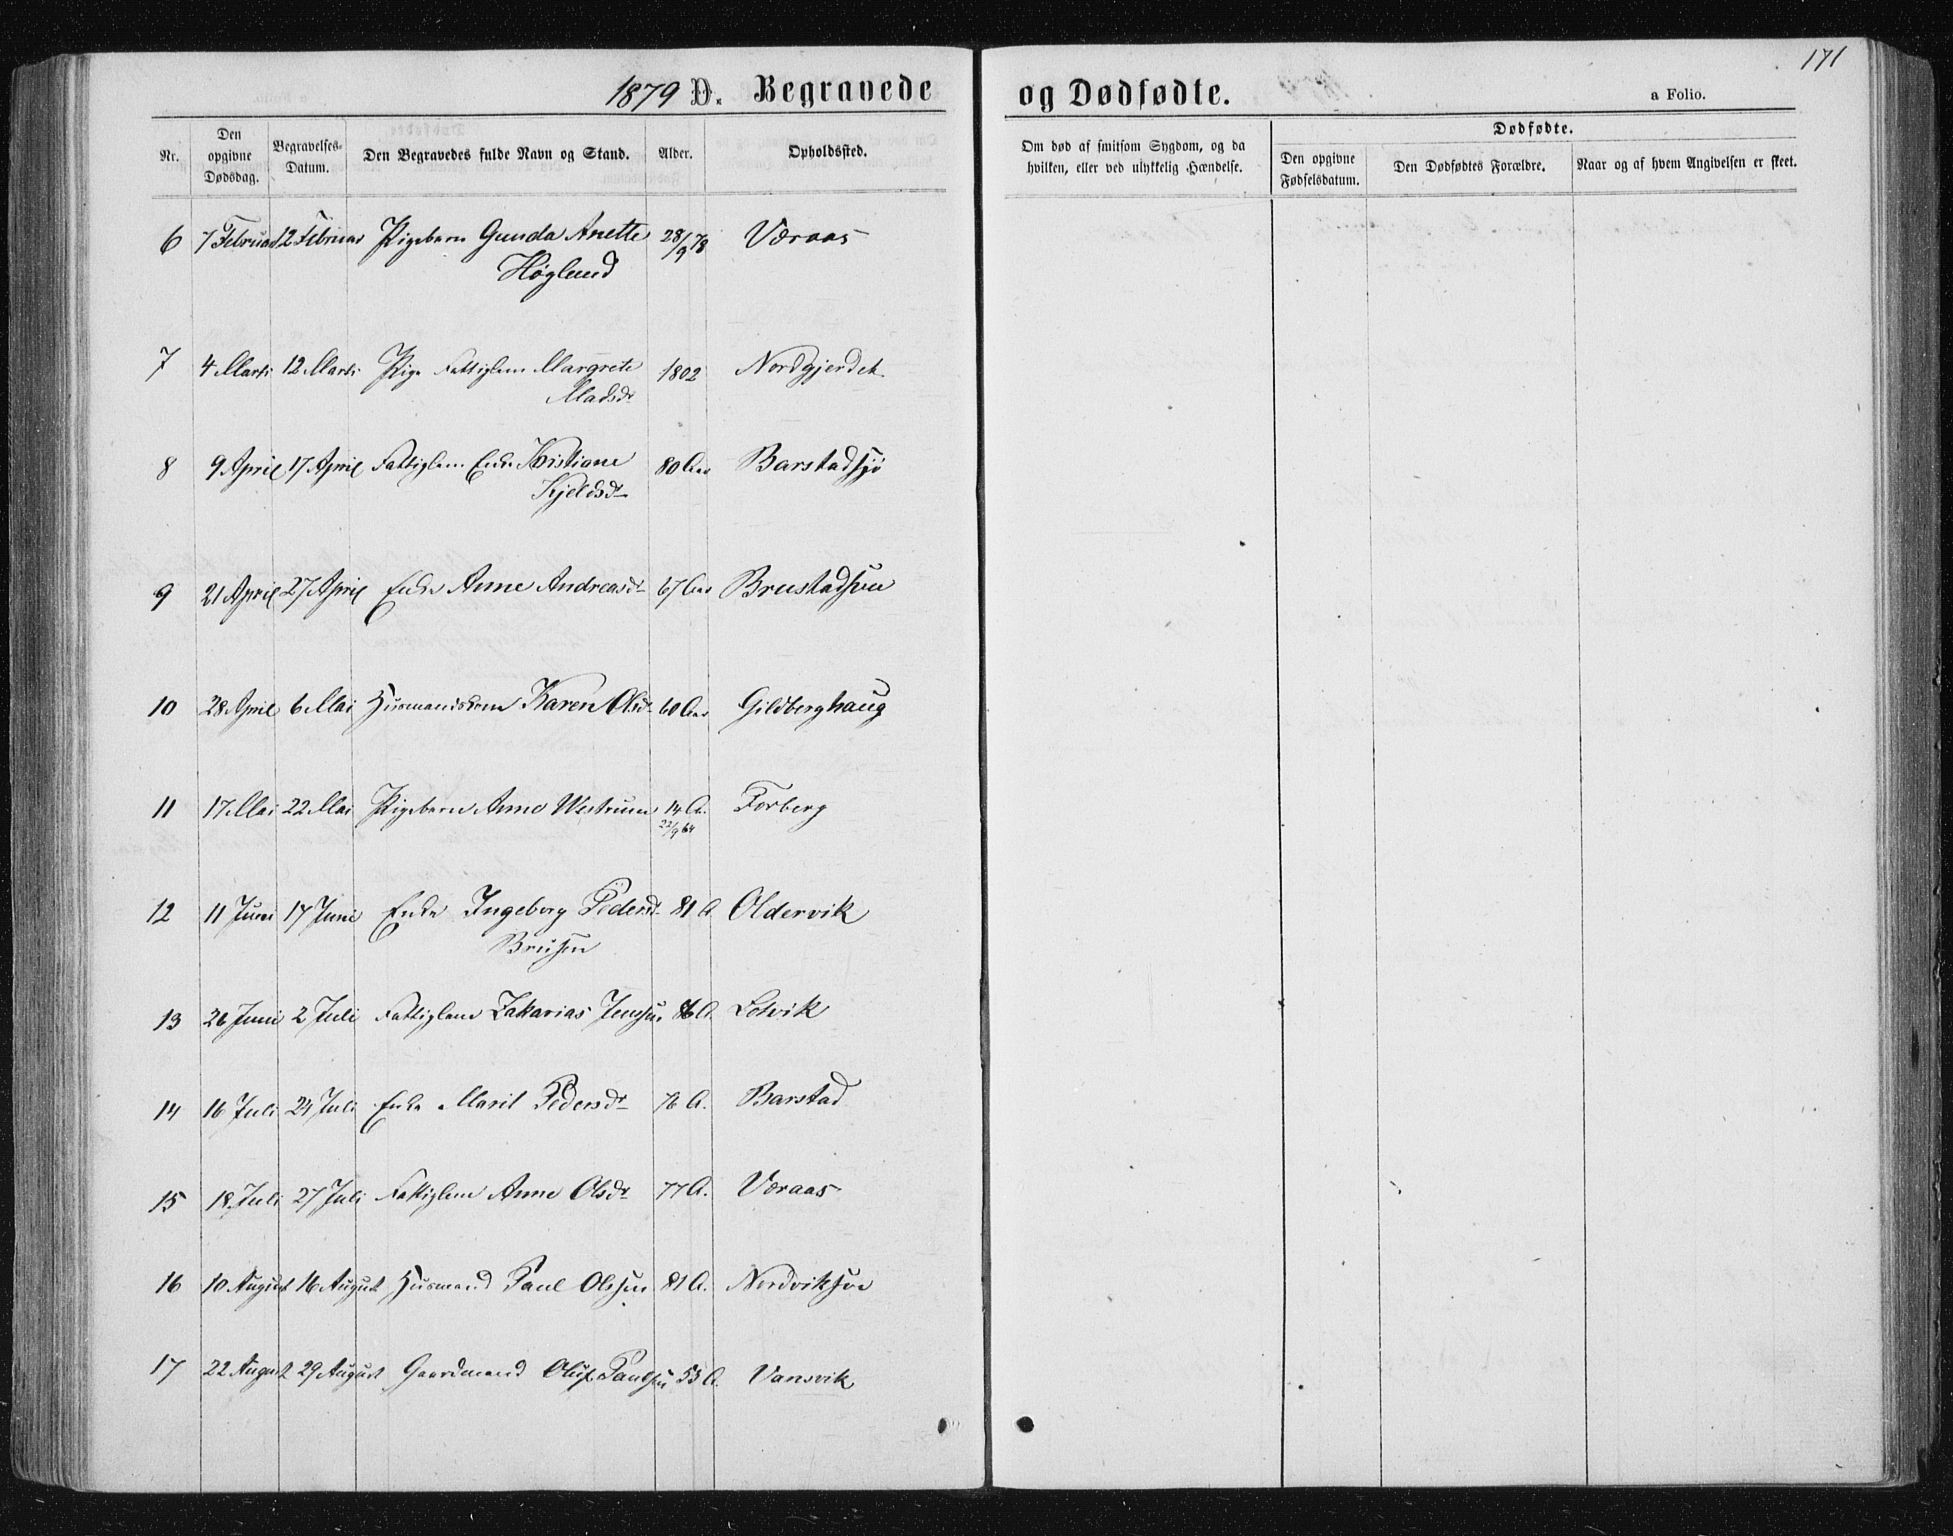 171
1879 D. Begravede og Dødfødte. a Folio.
Nr. Den opgivne Dødsdag. Begravelses-Datum. Den Begravedes fulde Navn og Stand. Alder. Opholdssted. Om død af smitsom Sygdom, og da hvilken, eller ved ulykkelig Hændelse. Dødfødte. Den opgivne Fødselsdatum. Den Dødfødtes Forældre. Naar og af hvem Angivelsen er skeet.
6 7 Februar 12 Februar Pigebarn Gunda Anette 28/9 78 Væraas
Høglund
7 4 Marts 12 Marts Pige Fattiglem Margrete 1802 Nordgjerdet
Madsdr
8 9 April 17 April Fattiglem Enke Kristiane 80 Aar Barstadsjø
Kjeldsdr
9 21 April 27 April Enke Anne Andreasdr 67 Aar
10 28 April 6 Mai Husmandskone Karen Olsdr 60 Aar Gildberghaug
11 17 Mai 22 Mai Pigebarn Anne Westrum 14 A. Forberg
22/9 64
12 11 Juni 17 Juni Enke Ingeborg Pedersdr 81 A. Oldervik
13 26 Juni 2 Juli Fattiglem Zakarias Jensen 86 A. Lotvik
14 16 Juli 24 Juli Enke Marit Pedersdr 76 A. Barstad
15 18 Juli 27 Juli Fattiglem Anne Olsdr 77 A. Væraas
16 10 August 16 August Husmand Paul Olssen 81 A.
17 22 August 29 August Gaardmand Oluf Paulsen 53 A. Vansvik